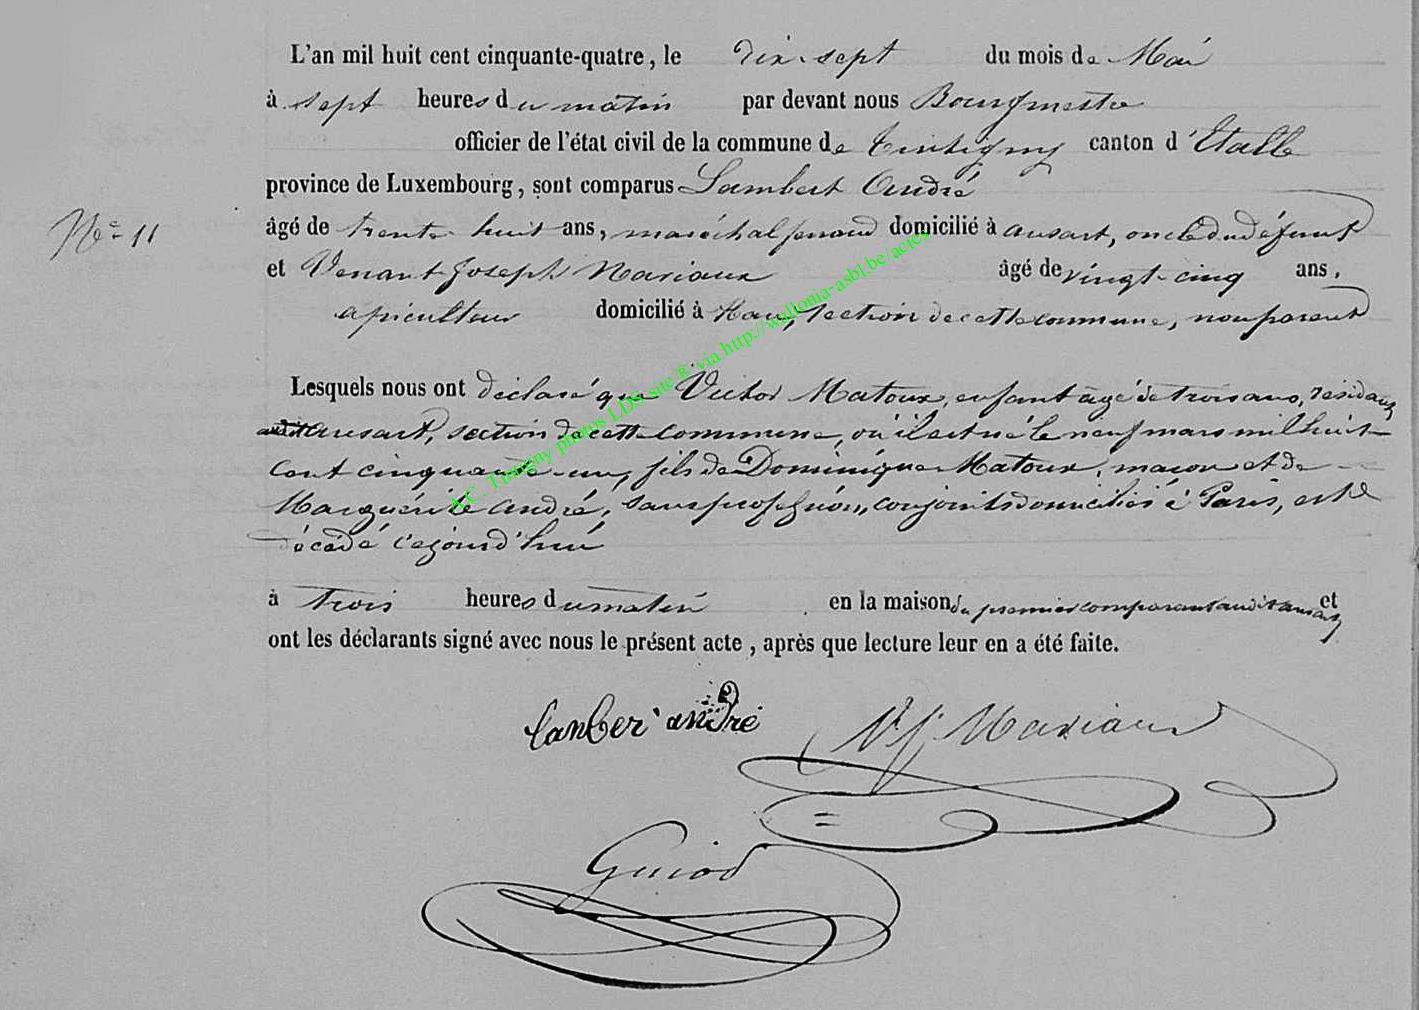 L'an mil huit cent cinquante-quatre, le dix-sept du mois de Mai
à sept heures du matin par devant nous Bourgmestre
officier de l'état civil de la commune de tintigny canton d'Etalle
province de Luxembourg, sont comparus Lambert André
Nº 11
âgé de trente huit ans, maréchal ferrand domicilié à ansart, oncle du défunt
et Venant Joseph Mariaux âgé de vingt-cinq ans,
apiculteur domicilié à han, section de cette commune, non parent
Lesquels nous ont déclaré que Victor Matoux, enfant âgé de trois ans, résidant
ansart, section de cette commune, où il est né le neuf mars mil huit
cent cinquante-un, fils de Dominique Matoux, maçon et de
Marguérite André, sans profession, conjoints domiciliés à Paris, est
décédé cejourd'hui
à trois heures du matin en la maison du premier comparant audit ansart et
ont les déclarants signé avec nous le présent acte, après que lecture leur en a été faite.
lanber andré V J Mariaux
Guiod
A.C. Tintigny photos LDS site ® via http://wallonia-asbl.be/actes